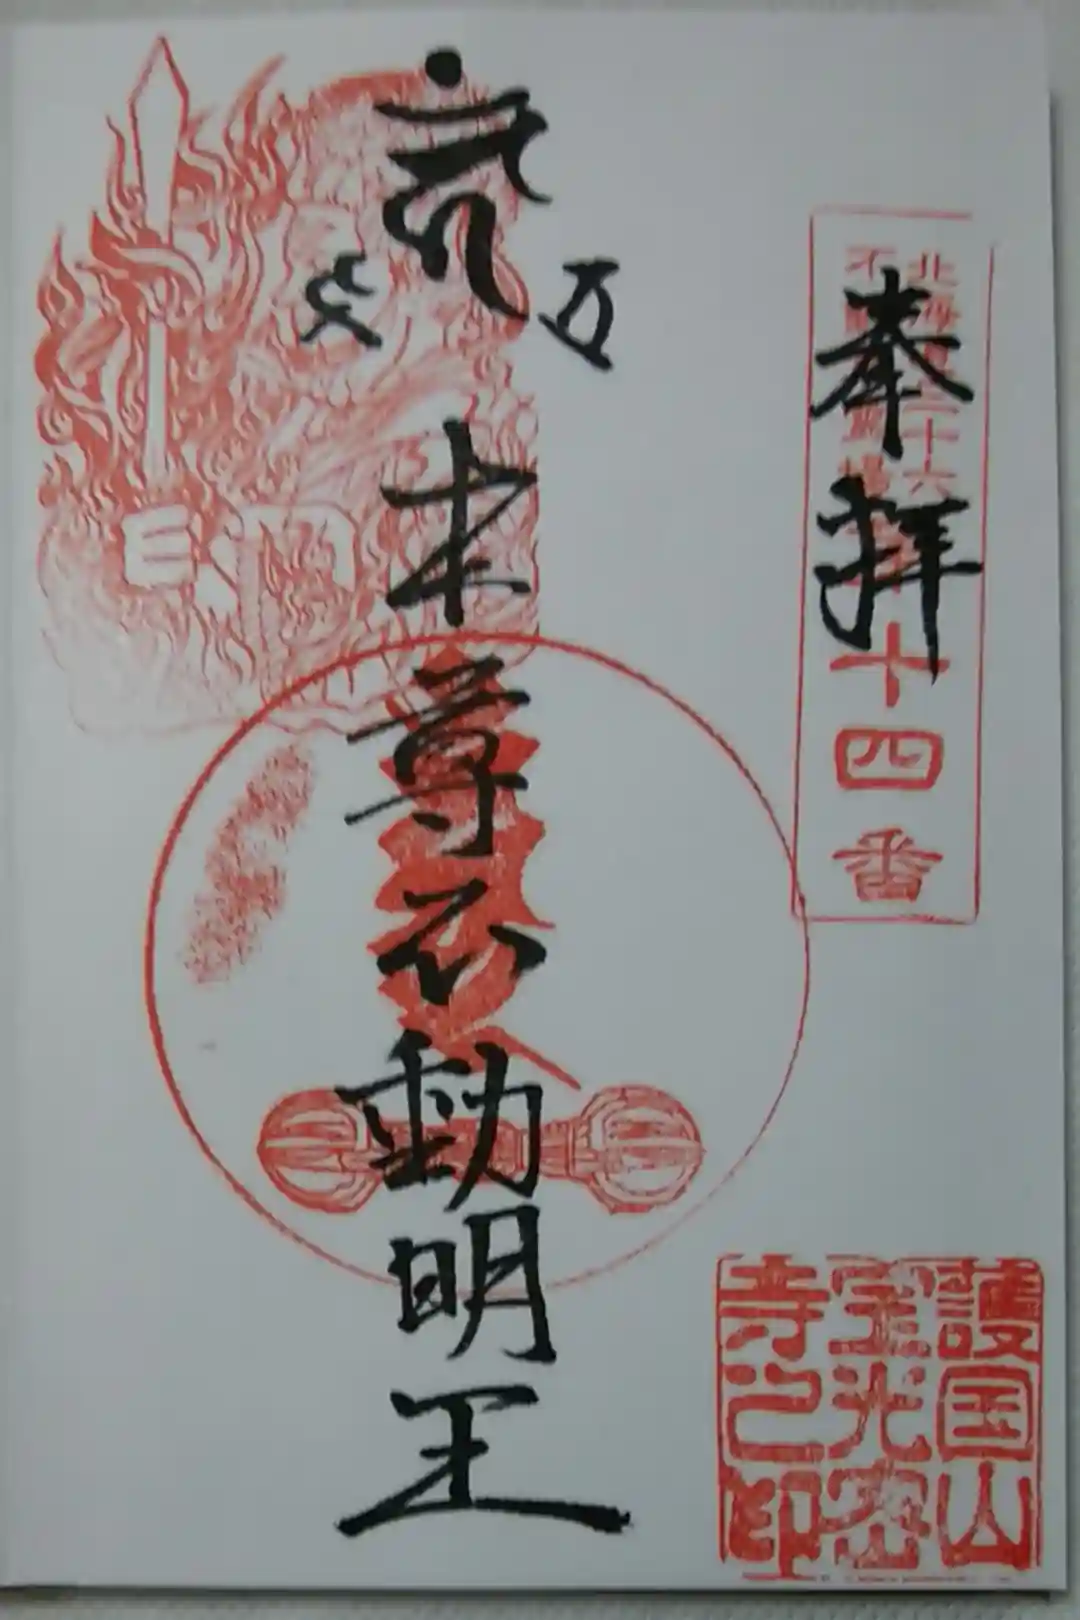 奉拝
北海道三十六
不動尊霊場
十四番
本尊不動明王
護国山
金光密
寺之印